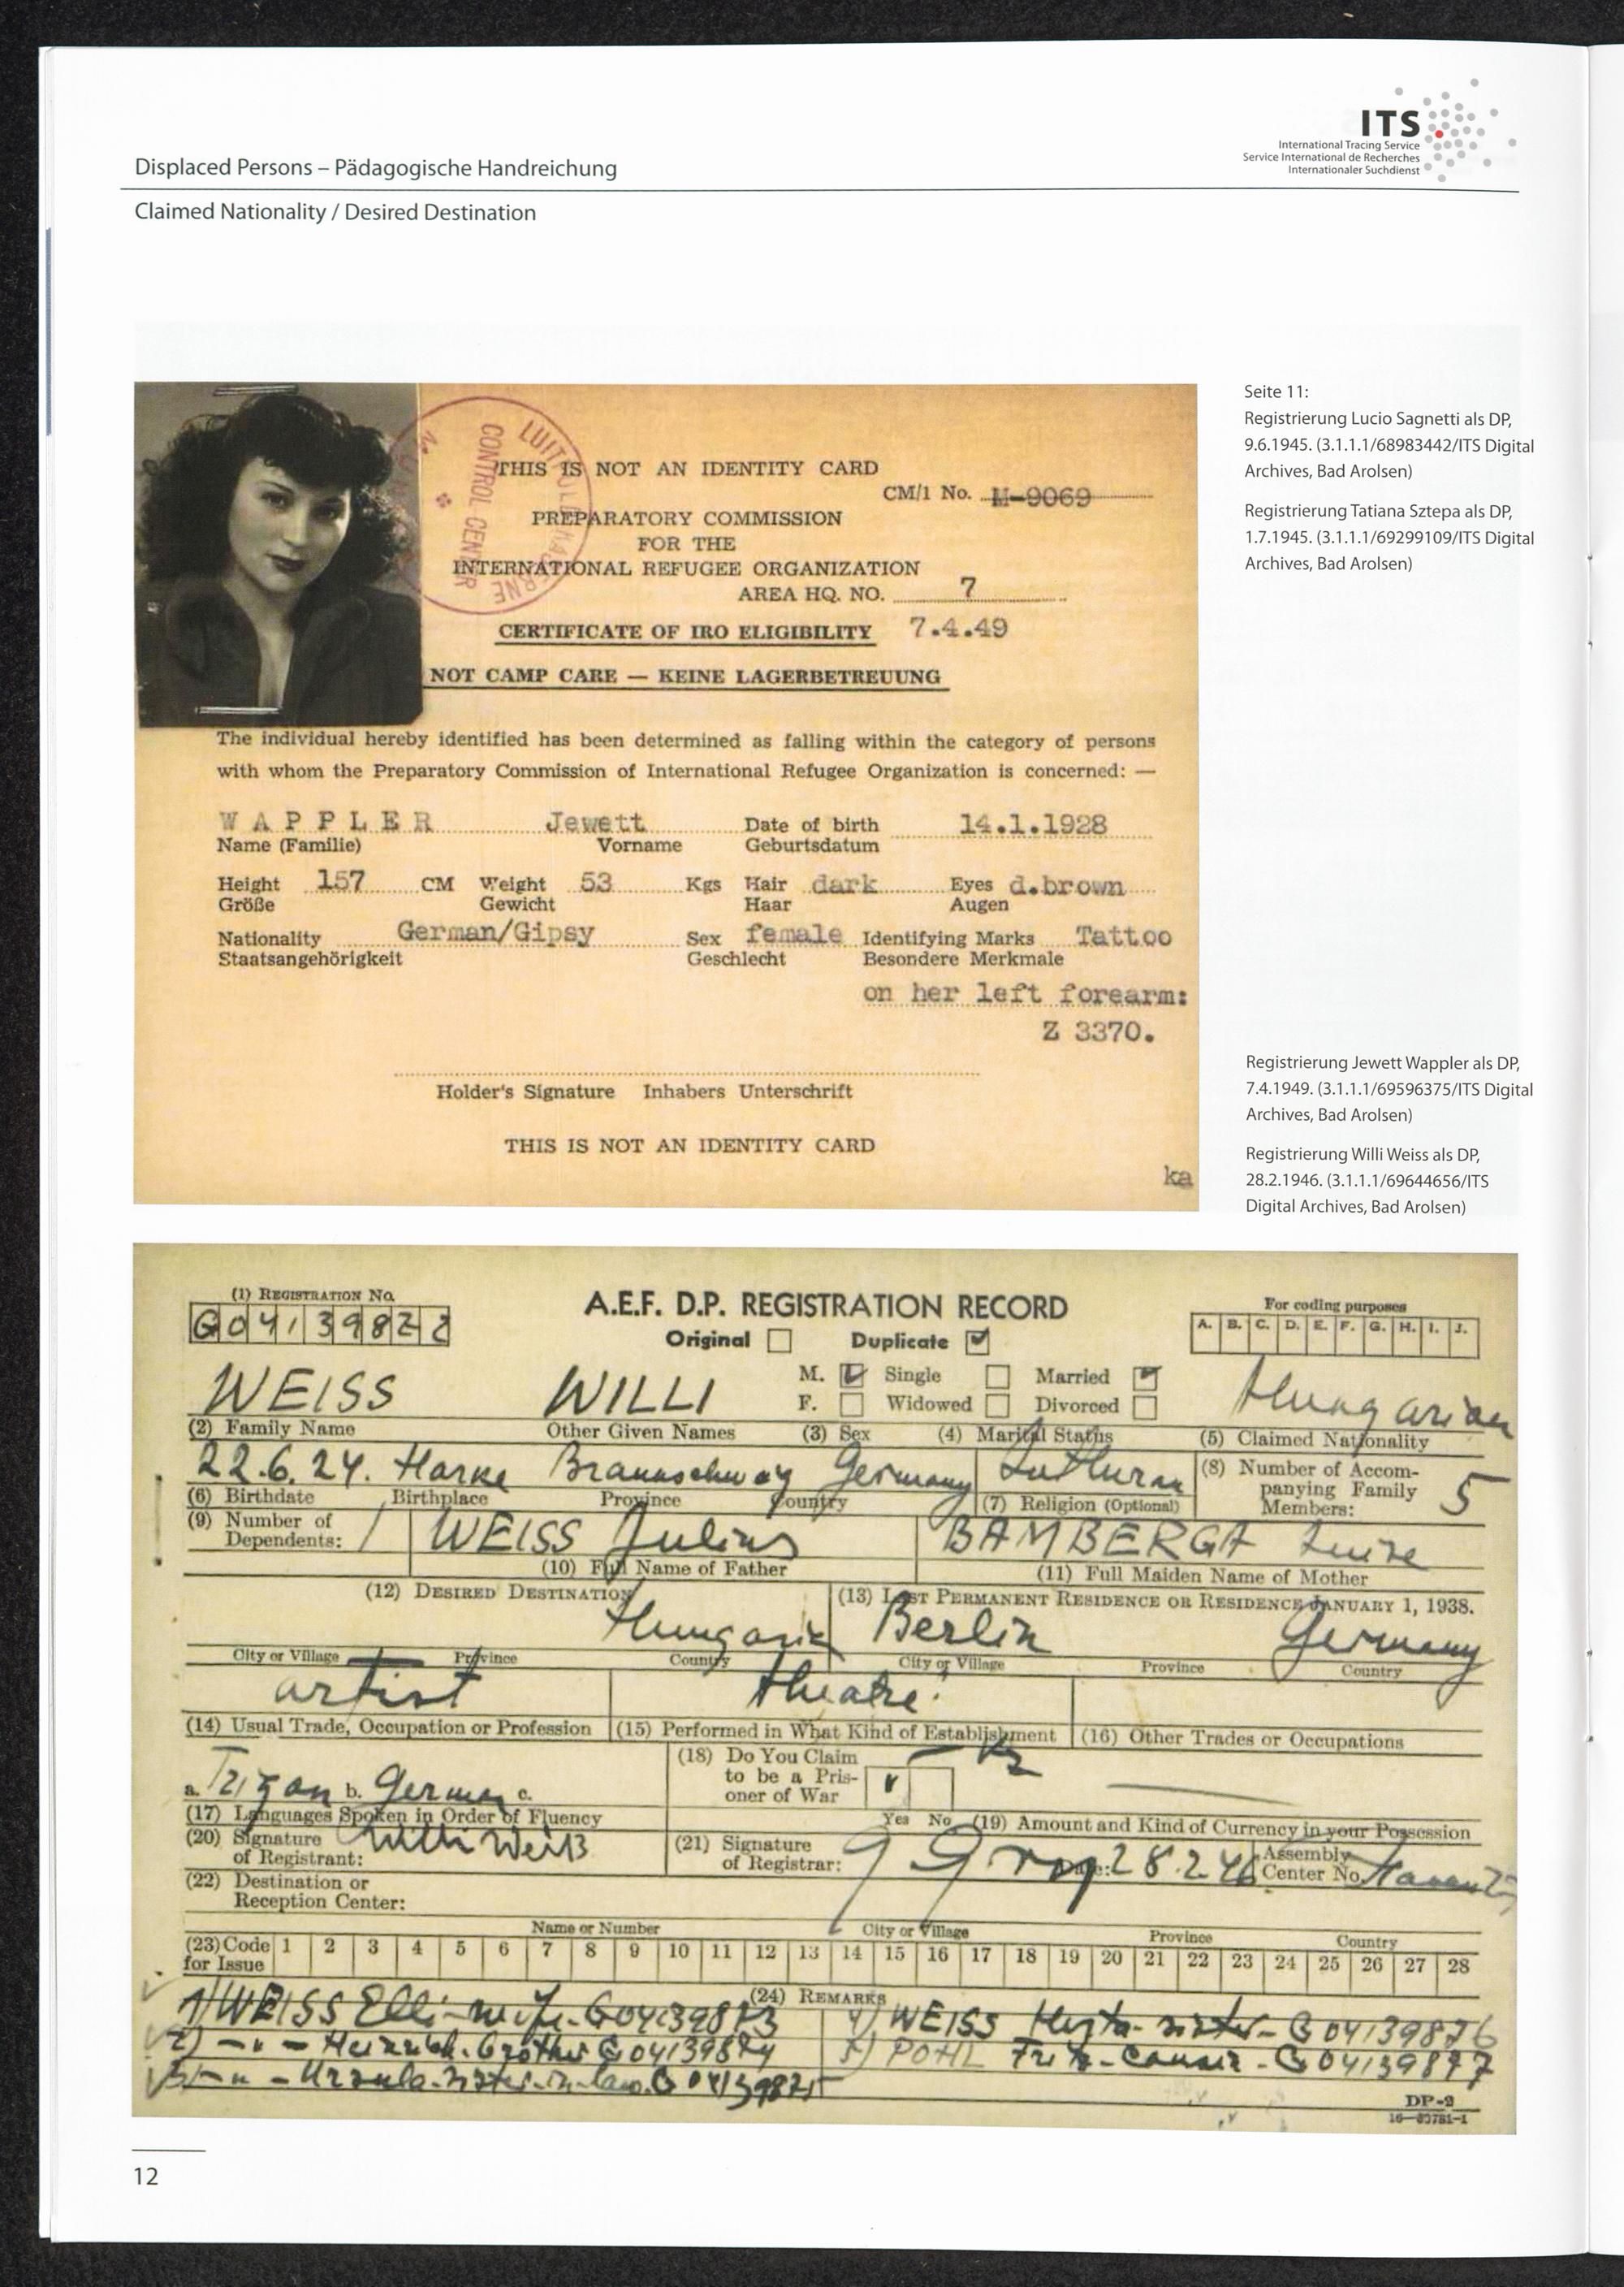 ITS
International Tracing Service
Service International de Recherches
Internationaler Suchdienst
Displaced Persons – Pädagogische Handreichung
Claimed Nationality / Desired Destination
Seite 11:
Registrierung Lucio Sagnetti als DP,
9.6.1945. (3.1.1.1/68983442/ITS Digital
Archives, Bad Arolsen)
Registrierung Tatiana Sztepa als DP,
1.7.1945. (3.1.1.1/69299109/ITS Digital
Archives, Bad Arolsen)
CONTROL CENTER
THIS IS NOT AN IDENTITY CARD
CM/1 No. M-9069
PREPARATORY COMMISSION
FOR THE
INTERNATIONAL REFUGEE ORGANIZATION
AREA HQ. NO. 7
CERTIFICATE OF IRO ELIGIBILITY 7.4.49
NOT CAMP CARE — KEINE LAGERBETREUUNG
The individual hereby identified has been determined as falling within the category of persons
with whom the Preparatory Commission of International Refugee Organization is concerned: —
WAPPLER Jewett Date of birth 14.1.1928
Name (Familie) Vorname Geburtsdatum
Height 157 CM Weight 53 Kgs Hair dark Eyes d.brown
Größe Gewicht Haar Augen
Nationality German/Gipsy Sex female Identifying Marks Tattoo
Staatsangehörigkeit Geschlecht Besondere Merkmale
on her left forearm:
Z 3370.
Holder's Signature Inhabers Unterschrift
THIS IS NOT AN IDENTITY CARD
ka
Registrierung Jewett Wappler als DP,
7.4.1949. (3.1.1.1/69596375/ITS Digital
Archives, Bad Arolsen)
Registrierung Willi Weiss als DP,
28.2.1946. (3.1.1.1/69644656/ITS
Digital Archives, Bad Arolsen)
(1) REGISTRATION No.
A.E.F. D.P. REGISTRATION RECORD
For coding purposes
G04139872
Original Duplicate
A. B. C. D. E. F. G. H. I. J.
WEISS WILLI M. Single Married Hungarian
F. Widowed Divorced
(2) Family Name Other Given Names (3) Sex (4) Marital Status (5) Claimed Nationality
22.6.24. Braunschweig Germany Lutheran (8) Number of Accom-
panying Family
Members: 5
(6) Birthdate Birthplace Province Country (7) Religion (Optional)
(9) Number of
Dependents: 1 WEISS Julius BAMBERGA Luise
(10) Full Name of Father (11) Full Maiden Name of Mother
(12) DESIRED DESTINATION (13) LAST PERMANENT RESIDENCE OR RESIDENCE JANUARY 1, 1938.
Hungaria Berlin Germany
City or Village Province Country City or Village Province Country
artist theatre
(14) Usual Trade, Occupation or Profession (15) Performed in What Kind of Establishment (16) Other Trades or Occupations
a. b. German c. (18) Do You Claim
to be a Pris-
oner of War
(17) Languages Spoken in Order of Fluency Yes No (19) Amount and Kind of Currency in your Possession
(20) Signature
of Registrant: Willi Weiß (21) Signature
of Registrar: Date: 28.2.46 Assembly
Center No.
(22) Destination or
Reception Center:
Name or Number City or Village Province Country
(23) Code
for Issue 1 2 3 4 5 6 7 8 9 10 11 12 13 14 15 16 17 18 19 20 21 22 23 24 25 26 27 28
(24) REMARKS
1) WEISS Elli - wife - G04139873 4) WEISS Herta - sister - G04139876
2) Heinrich - brother G04139874 5) POHL Fritz - G04139877
3) Ursula - sister-in-law. G04139875
DP-2
16—
12